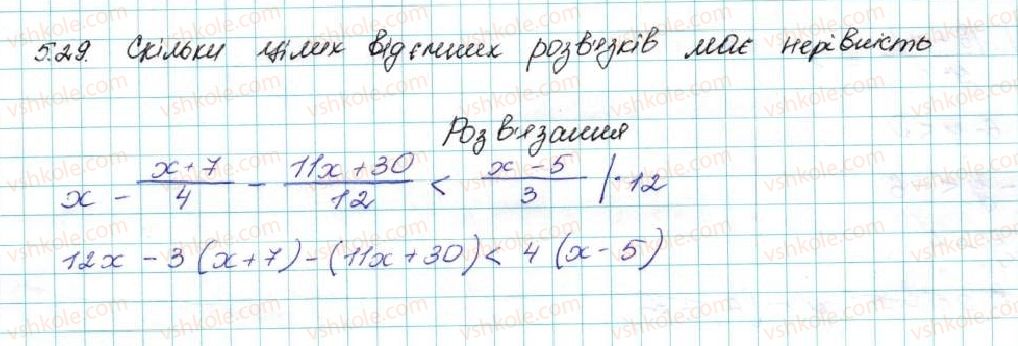 5.29. Скільки цілих від'ємних розв'язків має нерівність
Розв'язання
x - \frac{x+7}{4} - \frac{11x+30}{12} < \frac{x-5}{3} | · 12
12x - 3(x+7) - (11x+30) < 4(x-5)